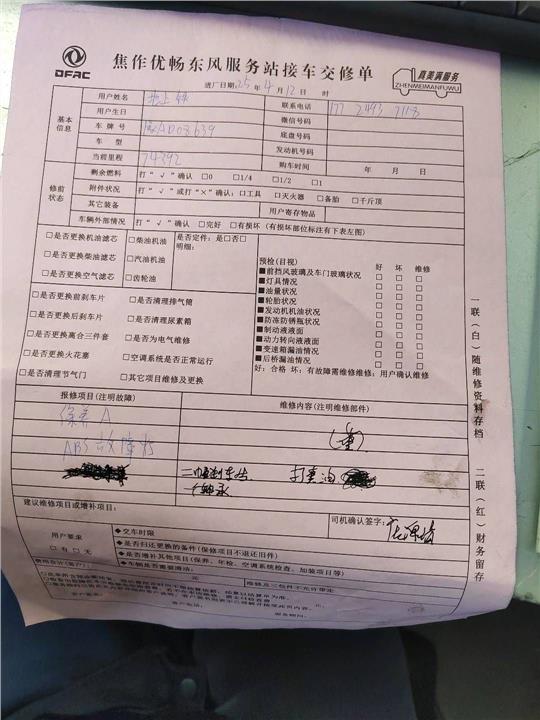 DFAC
焦作优畅东风服务站接车交修单
真美满服务
ZHENMEIMANFUWU
进厂日期:25年4月12日 时
基本信息
用户姓名
联系电话 177 2493 7118
用户生日
微信号码
车牌号
底盘号码
车型
发动机号码
当前里程 74392
购车时间 年 月 日
修前状态
剩余燃料 打“√”确认 □0 □1/4 □1/2 □1
附件状况 打“√”或打“×”确认:□工具 □灭火器 □备胎 □千斤顶
其它装备
用户寄存物品
车辆外部情况 打“√”确认 □完好 □有损坏(有损坏部位标注有下表左图)
□是否更换机油滤芯 □柴油机油 是否定件:是□否□
□是否更换柴油滤芯 □汽油机油 明细:
□是否更换空气滤芯 □齿轮油
预检(目视) 好 坏 维修
■前挡风玻璃及车门玻璃状况 □ □ □
■灯具情况 □ □ □
■油量状况 □ □ □
■轮胎状况 □ □ □
■发动机机油状况 □ □ □
■防冻防锈瓶状况 □ □ □
■制动液液面 □ □ □
■动力转向液液面 □ □ □
■变速箱漏油情况 □ □ □
■后桥漏油情况 □ □ □
好:合格 坏:有故障需维修维修:用户确认维修
□是否更换前刹车片 □是否清理排气筒
□是否更换后刹车片 □是否清理尿素箱
□是否更换离合三件套 □是否为电气维修
□是否更换火花塞 □空调系统是否正常运行
□是否清理节气门 □其它项目维修及更换
报修项目(注明故障)
维修内容(注明维修部件)
保养A
ABS故障灯
打黄油
建议维修项目或增补项目:
司机确认签字:
用户要求
□有 □无
◆交车时限
◆是否归还更换的备件(保修项目不退还旧件)
◆是否增补其他项目(保养、年检、空调系统检查、加装项目等)
◆车辆是否需要清洁:
元
一联(白)随维修资料存档
二联(红)财务留存